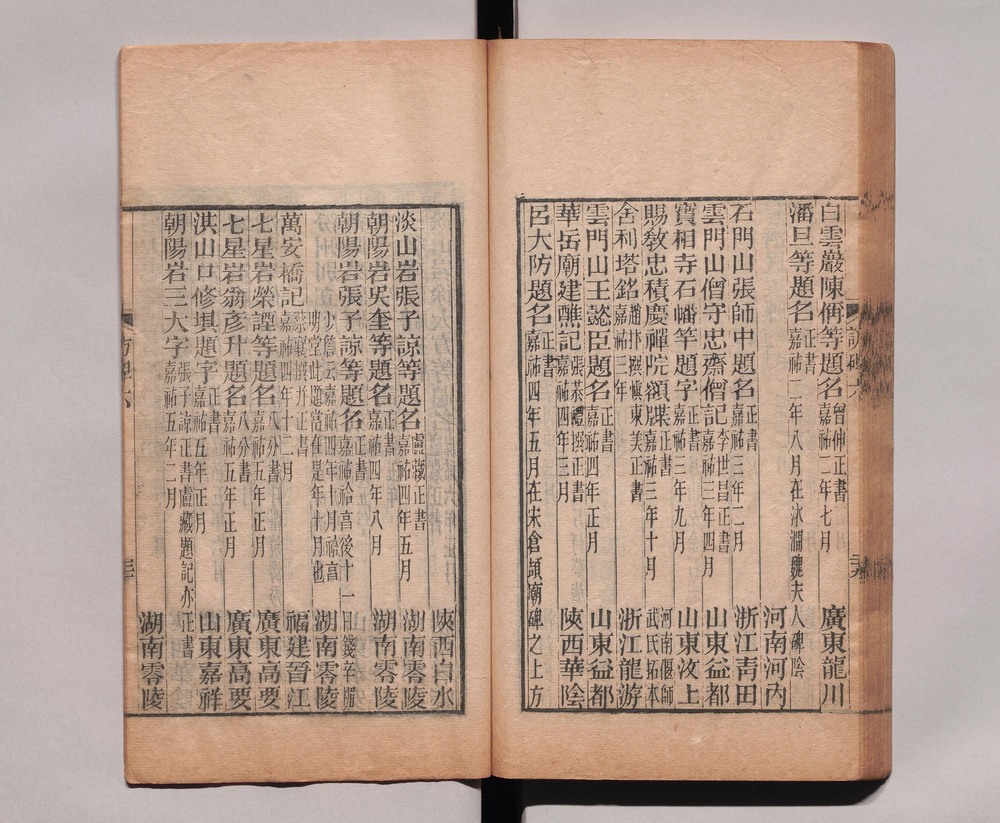 白雲巖陳偁等題名 曾伸正書 嘉祐二年七月 廣東龍川
潘旦等題名 正書 嘉祐二年八月在冰澗魏夫人碑陰 河南河內
石門山張師中題名 正書 嘉祐三年二月 浙江青田
雲門山僧守忠齋僧記 李世昌正書 嘉祐三年四月 山東益都
寶相寺石幡竿題字 正書 嘉祐三年九月 山東汶上
賜敕忠積慶禪院額牒 正書 嘉祐三年十月 河南偃師武氏拓本
舍利塔銘 趙抃撰 慎東美正書 嘉祐三年 浙江龍游
雲門山王懿臣題名 正書 嘉祐四年正月 山東益都
華岳廟建醮記 張茶禮撰 正書 嘉祐四年三月 陝西華陰
呂大防題名 正書 嘉祐四年五月在宋倉頡廟碑之上方
陝西白水
淡山岩張子諒等題名 盧臧正書 嘉祐四年五月 湖南零陵
朝陽岩吳奎等題名 正書 嘉祐四年八月 湖南零陵
朝陽岩張子諒等題名 正書 嘉祐祫享後十一日錢辛楣
少詹云嘉祐四年十月祫享 明堂此題當在是年十月也 湖南零陵
萬安橋記 蔡襄撰并正書 嘉祐四年十二月 福建晉江
七星岩榮諲等題名 八分書 嘉祐五年正月 廣東高要
七星岩翁彥升題名 八分書 嘉祐五年正月 廣東高要
淇山口修堌題字 正書 嘉祐五年正月 山東嘉祥
朝陽岩三大字 張子諒正書盧藏題記亦正書 嘉祐五年二月 湖南零陵